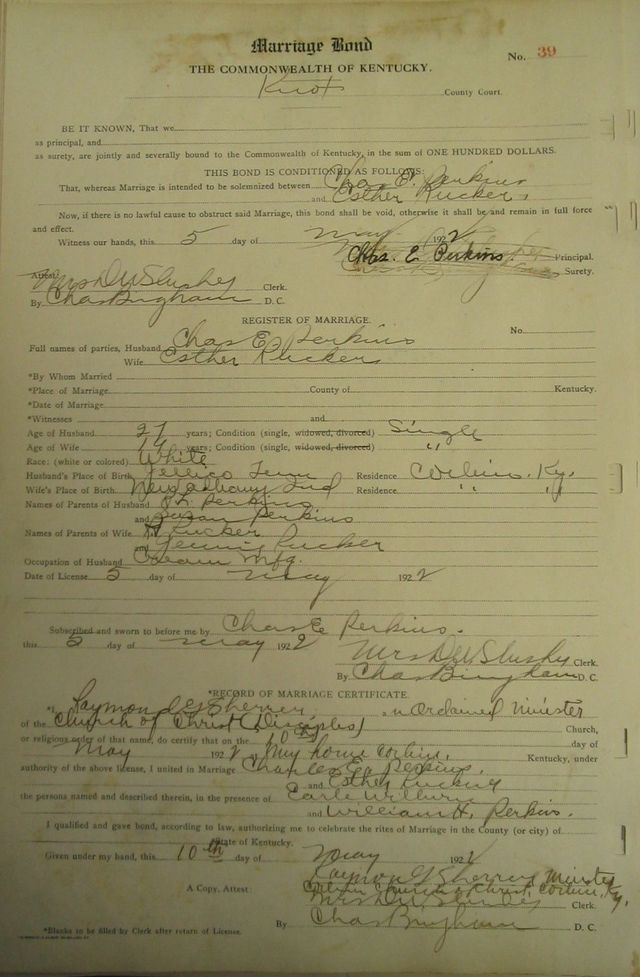 Marriage Bond
No. 39
THE COMMONWEALTH OF KENTUCKY.
Knox County Court.
BE IT KNOWN, That we
as principal, and
as surety, are jointly and severally bound to the Commonwealth of Kentucky, in the sum of ONE HUNDRED DOLLARS.
THIS BOND IS CONDITIONED AS FOLLOWS:
That, whereas Marriage is intended to be solemnized between Chas. E. Perkins
and Esther Rucker,
Now, if there is no lawful cause to obstruct said Marriage, this bond shall be void, otherwise it shall be and remain in full force
and effect.
Witness our hands, this 5 day of May 1922
Chas. E. Perkins. Principal.
Surety.
Attest:
Mrs D W Slusher Clerk.
By Chas Bingham D. C.
REGISTER OF MARRIAGE.
No.
Full names of parties, Husband Chas E. Perkins
Wife Esther Rucker
*By Whom Married
*Place of Marriage County of Kentucky.
*Date of Marriage
*Witnesses and
Age of Husband 27 years; Condition (single, widowed, divorced) Single
Age of Wife years; Condition (single, widowed, divorced) "
Race: (white or colored) White
Husband's Place of Birth Jellico Tenn Residence Corbin, Ky.
Wife's Place of Birth New Albany Ind Residence " "
Names of Parents of Husband Perkins
and Susan Perkins
Names of Parents of Wife Rucker
and Jennie Rucker
Occupation of Husband Cream Mfg.
Date of License 5 day of May 1922
Subscribed and sworn to before me by Chas E Perkins.
this 5 day of May 1922
Mrs D W Slusher Clerk.
By Chas Bingham D. C.
*RECORD OF MARRIAGE CERTIFICATE.
*I, Raymond G Sherrer, an Ordained Minister
of the Church of Christ (Disciples) Church,
or religious order of that name, do certify that on the 10th day of
May 1922, My home Corbin, Kentucky, under
authority of the above license, I united in Marriage Charles E. Perkins,
and Esther Rucker
the persons named and described therein, in the presence of Earle
and William H. Perkins.
I qualified and gave bond, according to law, authorizing me to celebrate the rites of Marriage in the County (or city) of
State of Kentucky.
Given under my hand, this 10th day of May 1922
Raymond G Sherrer Minister
Church of Christ, Corbin, Ky.
A Copy, Attest: Mrs D W Slusher Clerk.
By Chas Bingham D. C.
*Blanks to be filled by Clerk after return of License.